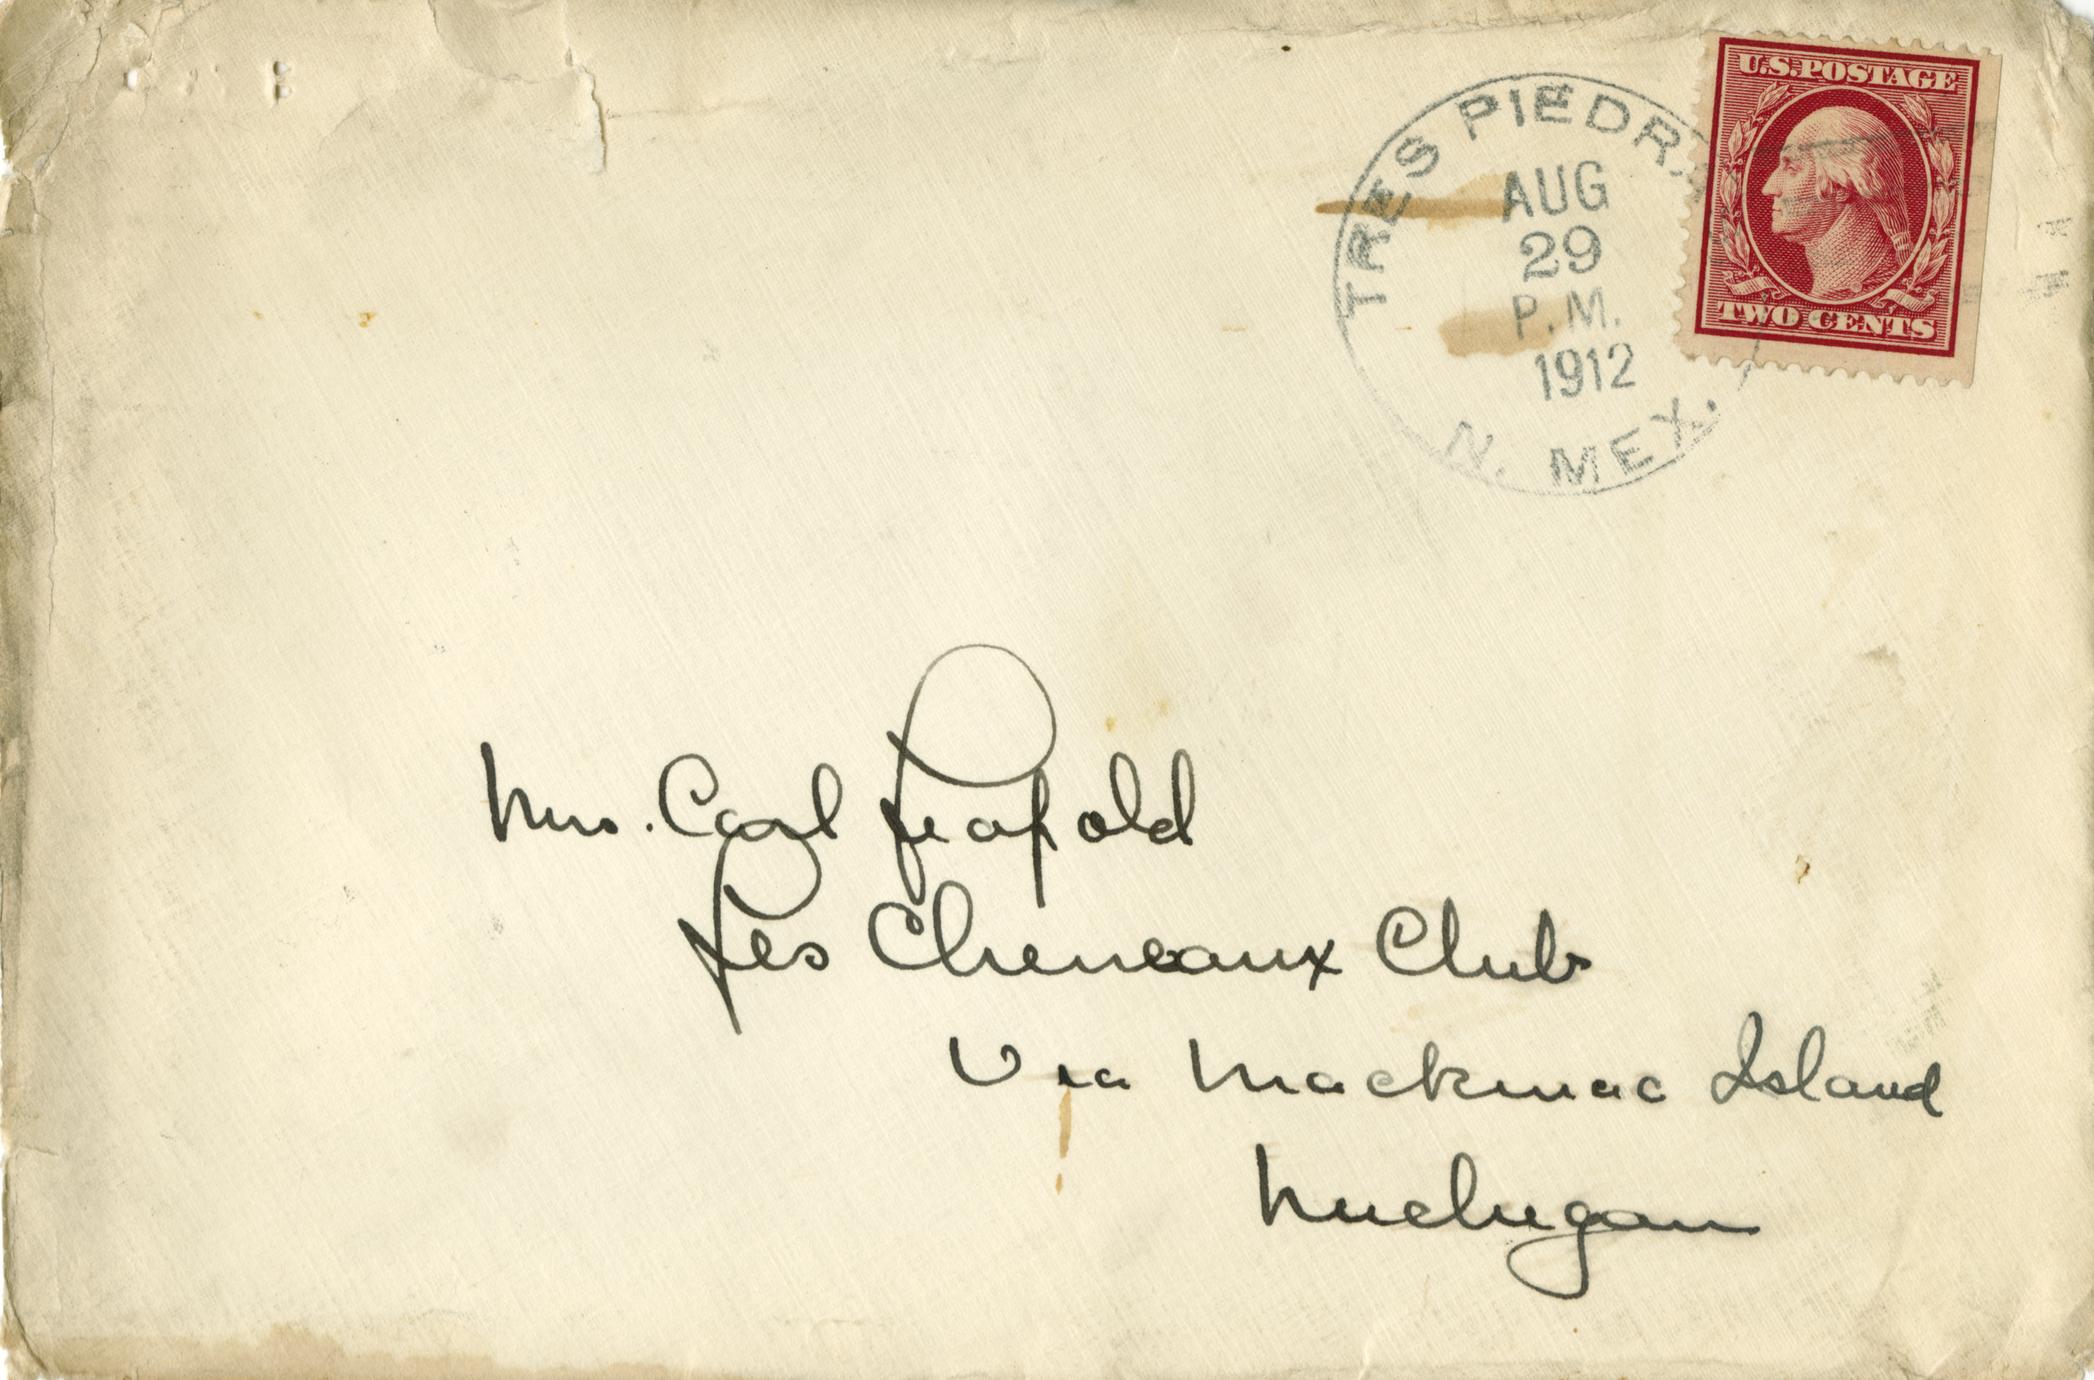 U.S. POSTAGE
TWO CENTS
TRES PIEDR
AUG
29
P.M.
1912
N. MEX.
Mrs. Carl Leopold
Les Cheneaux Club
Via Mackinac Island
Michigan